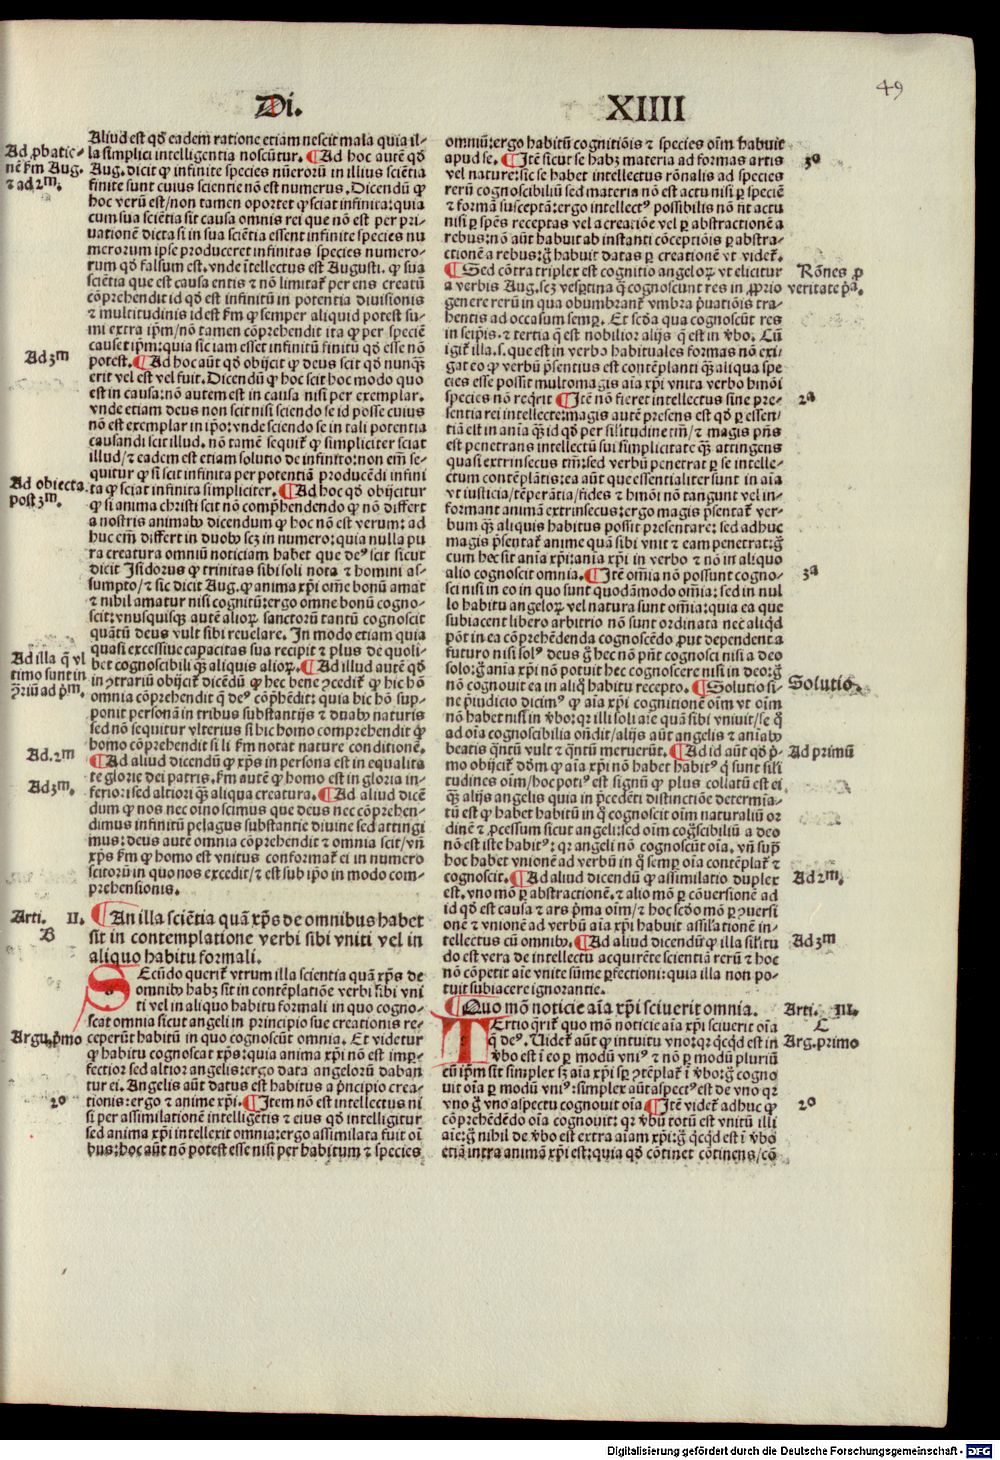 49
Di.
XIIII
Aliud est qđ eadem ratione etiam nescit mala quia il-
la simplici intelligentia noscūtur. ¶Ad hoc autē qđ
Aug. dicit ꝙ infinite species nūerorū in illius sciētia
finite sunt cuius scientie nōn est numerus. Dicendū ꝙ
hoc verū est/non tamen oportet ꝙ sciat infinita: quia
cum sua sciētia sit causa omnis rei que nō est per pri-
uationē dicta si in sua sciētia essent infinite species nu
merorum ipse produceret infinitas species numero-
rum qđ falsum est. vnde ītellectus est Augusti. ꝙ sua
sciētia que est causa entis ⁊ nō limitat᷑ per ens creatū
cōprehendit id qđ est infinitū in potentia diuisionis
⁊ multitudinis id est ẜm ꝙ semper aliquid potest su-
mi extra ip̄m/nō tamen cōprehendit ita ꝙ per speciē
causet ip̄m: quia sic iam esset infinitū finitū qđ esse nō
potest. ¶Ad hoc aūt qđ obijcit᷑ ꝙ deus scit qđ nunꝗ̄
erit vel est vel fuit. Dicendū ꝙ hoc scit hoc modo quo
est in causa: nō autem est in causa nisi per exemplar.
vnde etiam deus non scit nisi sciendo se id posse cuius
nō est exemplar in ip̄o: vnde sciendo se in tali potentia
causandi scit illud. nō tamē sequit᷑ ꝙ simpliciter sciat
illud/⁊ eadem est etiam solutio de infinito: non em̄ se-
quitur ꝙ si scit infinita per potentiā producēdi infini
ta ꝙ sciat infinita simpliciter. ¶Ad hoc qđ obijcitur
ꝙ si anima christi scit nō comp̄hendendo ꝙ nō differt
a nostris animabꝰ dicendum ꝙ hoc nō est verum: ad
huc em̄ differt in duobꝰ scꝫ in numero: quia nulla pu
ra creatura omniū noticiam habet que deꝰ scit sicut
dicit Isidorus ꝙ trinitas sibi soli nota ⁊ homini as-
sumpto/⁊ sic dicit Aug. ꝙ anima xp̄i om̄e bonū amat
⁊ nihil amatur nisi cognitū: ergo omne bonū cogno-
scit: vnusquisqꝫ autē alioꝝ sanctorū tantū cognoscit
quātū deus vult sibi reuelare. In modo etiam quia
quasi excessiue capacitas sua recipit ⁊ plus de quoli-
bet cognoscibili ꝗ̄ aliquis alioꝝ. ¶Ad illud autē qđ
in ꝯtrariū obijcit᷑ dicēdū ꝙ hec bene ꝓcedit᷑ ꝙ hic hō
omnia cōprehendit q̄ deꝰ cōp̄hēdit: quia hic hō sup-
ponit personā in tribus substantijs ⁊ duabꝰ naturis
sed nō sequitur vlterius si hic homo comprehendit ꝙ
homo cōprehendit si li ẜm notat nature conditionē.
¶Ad aliud dicendū ꝙ xp̄s in persona est in equalita
te glorie dei patris. ẜm autē ꝙ homo est in gloria in-
feriori sed altiori ꝗ̄ aliqua creatura. ¶Ad aliud dicē
dum ꝙ nos nec oīno scimus que deus nec cōprehen-
dimus infinitū pelagus substantie diuine sed attingi
mus: deus autē omnia cōprehendit ⁊ omnia scit/vn̄
xp̄s ẜm ꝙ homo est vnitus conformat᷑ ei in numero
scitorū in quo nos excedit/⁊ est sub ip̄o in modo com-
prehensionis.
¶An illa sciētia quā xp̄s de omnibus habet
sit in contemplatione verbi sibi vniti vel in
aliquo habitu formali.
SEcūdo querit᷑ vtrum illa scientia quā xp̄s de
omnibꝰ habꝫ sit in contēplatiōe verbi sibi vni
ti vel in aliquo habitu formali in quo cogno-
scat omnia sicut angeli in principio sue creationis re-
ceperūt habitū in quo cognoscūt omnia. Et videtur
ꝙ habitu cognoscat xp̄s: quia anima xp̄i nōn est imper-
fectior sed altior angelis: ergo data angelorū daban
tur ei. Angelis aūt datus est habitus a p̄ncipio crea-
tionis: ergo ⁊ anime xp̄i. ¶Item nō est intellectus ni
si per assimilationē intelligētis ⁊ eius qđ intelligitur
sed anima xp̄i intellexit omnia: ergo assimilata fuit oī
bus: hoc aūt nō potest esse nisi per habitum ⁊ species
Ad ꝓbatio-
nē ẜm Aug.
⁊ ad 2m.
Ad 3m
Ad obiecta
post 3m.
Ad illa q̄ vl
timo sunt in
ꝯriū ad p̄m.
Ad. 2m
Ad 3m.
Arti. II.
B
Argu. p̄mo
2o
omniū: ergo habitū cognitiōis ⁊ species oīm habuit
apud se. ¶Itē sicut se habꝫ materia ad formas artis
vel nature: sic se habet intellectus rōnalis ad species
rerū cognoscibiliū sed materia nō est actu nisi ꝑ speciē
⁊ formā susceptā: ergo intellectꝰ possibilis nō fit actu
nisi ꝑ sp̄es receptas vel a creatiōe vel ꝑ abstractionē a
rebus: nō aūt habuit ab instanti cōceptiōis ꝑ abstra-
ctionē a rebus: g̊ habuit datas ꝑ creationē vt videt᷑.
¶Sed cōtra triplex est cognitio angeloꝝ vt elicitur
a verbis Aug. scꝫ vesꝑtina q̄ cognoscunt res in ꝓprio
genere rerū in qua obumbrant᷑ vmbra p̄uatiōis tra-
hentis ad occasum semꝑ. Et scđa qua cognoscūt res
in seip̄is. ⁊ tertia q̄ est nobilior alijs q̄ est in v̄bo. Cū
igit᷑ illa. s. que est in verbo habituales formas nō exi-
gat eo ꝙ verbū p̄sentius est contēplanti ꝗ̄ aliqua spe
cies esse possit multomagis aīa xp̄i vnita verbo hmōi
species nō req̄rit ¶Itē nō fieret intellectus sine pre-
sentia rei intellecte: magis autē presens est qđ ꝑ essen-
tiā est in anīa ꝗ̄ id qđ per sil̄itudinē tm̄/⁊ magis p̄ns
est penetrans intellectū sui simplicitate ꝗ̄ attingens
quasi extrinsecus tm̄: sed verbū penetrat ꝑ se intelle-
ctum contēplātis: ea aūt que essentialiter sunt in aīa
vt iusticia/tēperātia/fides ⁊ hmōi nō tangunt vel in-
formant animā extrinsecus: ergo magis p̄sentat᷑ ver-
bum ꝗ̄ aliquis habitus possit presentare: sed adhuc
magis p̄sentat᷑ anime quā sibi vnit ⁊ eam penetrat: g̊
cum hec sit anīa xp̄i: anīa xp̄i in verbo ⁊ nō in aliquo
alio cognoscit omnia. ¶Itē om̄ia nō possunt cogno-
sci nisi in eo in quo sunt quodāmodo om̄ia: sed in nul
lo habitu angeloꝝ vel natura sunt om̄ia: quia ea que
subiacent libero arbitrio nō sunt ordinata nec aliqđ
pōt in ea cōprehēdenda cognoscēdo ꝓut dependent a
futuro nisi solꝰ deus g̊ hec nō pn̄t cognosci nisi a deo
solo: g̊ anīa xp̄i nō potuit hec cognoscere nisi in deo: g̊
nō cognouit ea in aliq̊ habitu recepto. ¶Solutio si-
ne p̄iudicio dicimꝰ ꝙ aīa xp̄i cognitionē oīm vt oīm
nō habet nisi in v̄bo: qꝛ illi soli aīe quā sibi vniuit/se q̊
ad oīa cognoscibilia oñdit/alijs aūt angelis ⁊ anīabꝰ
beatis q̄ntū vult ⁊ q̄ntū meruerūt. ¶Ad id aūt qđ p̄-
mo obijcit᷑ dōm ꝙ aīa xp̄i nō habet habitꝰ q̄ sunt sil̄i
tudines oīm/hoc potiꝰ est signū ꝙ plus collatū est ei
ꝗ̄ alijs angelis quia in p̄cedēti distinctiōe determia-
tū est ꝙ habet habitū in q̊ cognoscit oīm naturaliū or
dinē ⁊ ꝓcessum sicut angeli: sed oīm cog̊scibiliū a deo
nō est iste habitꝰ: qꝛ angeli nō cognoscūt oīa. vn̄ suꝑ
hoc habet vnionē ad verbū in q̊ semꝑ oīa contēplat᷑ ⁊
cognoscit. ¶Ad aliud dicendū ꝙ assimilatio duplex
est. vno mō ꝑ abstractionē. ⁊ alio mō ꝑ cōuersionē ad
id qđ est causa ⁊ ars p̄ma oīm/⁊ hoc scđo mō ꝑ ꝯuersi
onē ⁊ vnionē ad verbū aīa xp̄i habuit assil̄ationē in-
tellectus cū omnibꝰ. ¶Ad aliud dicendū ꝙ illa sil̄itu
do est vera de intellectu acquirēte scientiam rerū ⁊ hoc
nō cōpetit aīe vnite sūme ꝑfectioni: quia illa non po-
tuit subiacere ignorantie.
¶Quo mō noticie aīa xp̄i sciuerit omnia.
TErtio q̄rit᷑ quo mō noticie aīa xp̄i sciuerit oīa
q̄ deꝰ. Uidet᷑ aūt ꝙ intuitu vno: qꝛ qͥcqͥd est in
v̄bo est ī eo ꝑ modū vniꝰ ⁊ nō ꝑ modū pluriū
cū ip̄m sit simplex sꝫ aīa xp̄i sꝑ ꝯtēplat᷑ ī v̄bo: g̊ cogno
uit oīa ꝑ modū vniꝰ: simplex aūt aspectꝰ est de vno qꝛ
vno g̊ vno aspectu cognouit oīa ¶Itē videt᷑ adhuc ꝙ
cōprehēdēdo oīa cognouit: qꝛ v̄bū totū est vnitū illi
aīe: g̊ nihil de v̄bo est extra aīam xp̄i: g̊ qͥcqͥd est ī v̄bo
etiā intra animā xp̄i est: quia qđ cōtinet cōtinens/cō
3o
Rōnes ꝓ
veritate p̄a.
2a
3a
Solutio
Ad primū
Ad 2m.
Ad 3m
Arti. III.
C
Arg. primo
2o
Digitalisierung gefördert durch die Deutsche Forschungsgemeinschaft - DFG